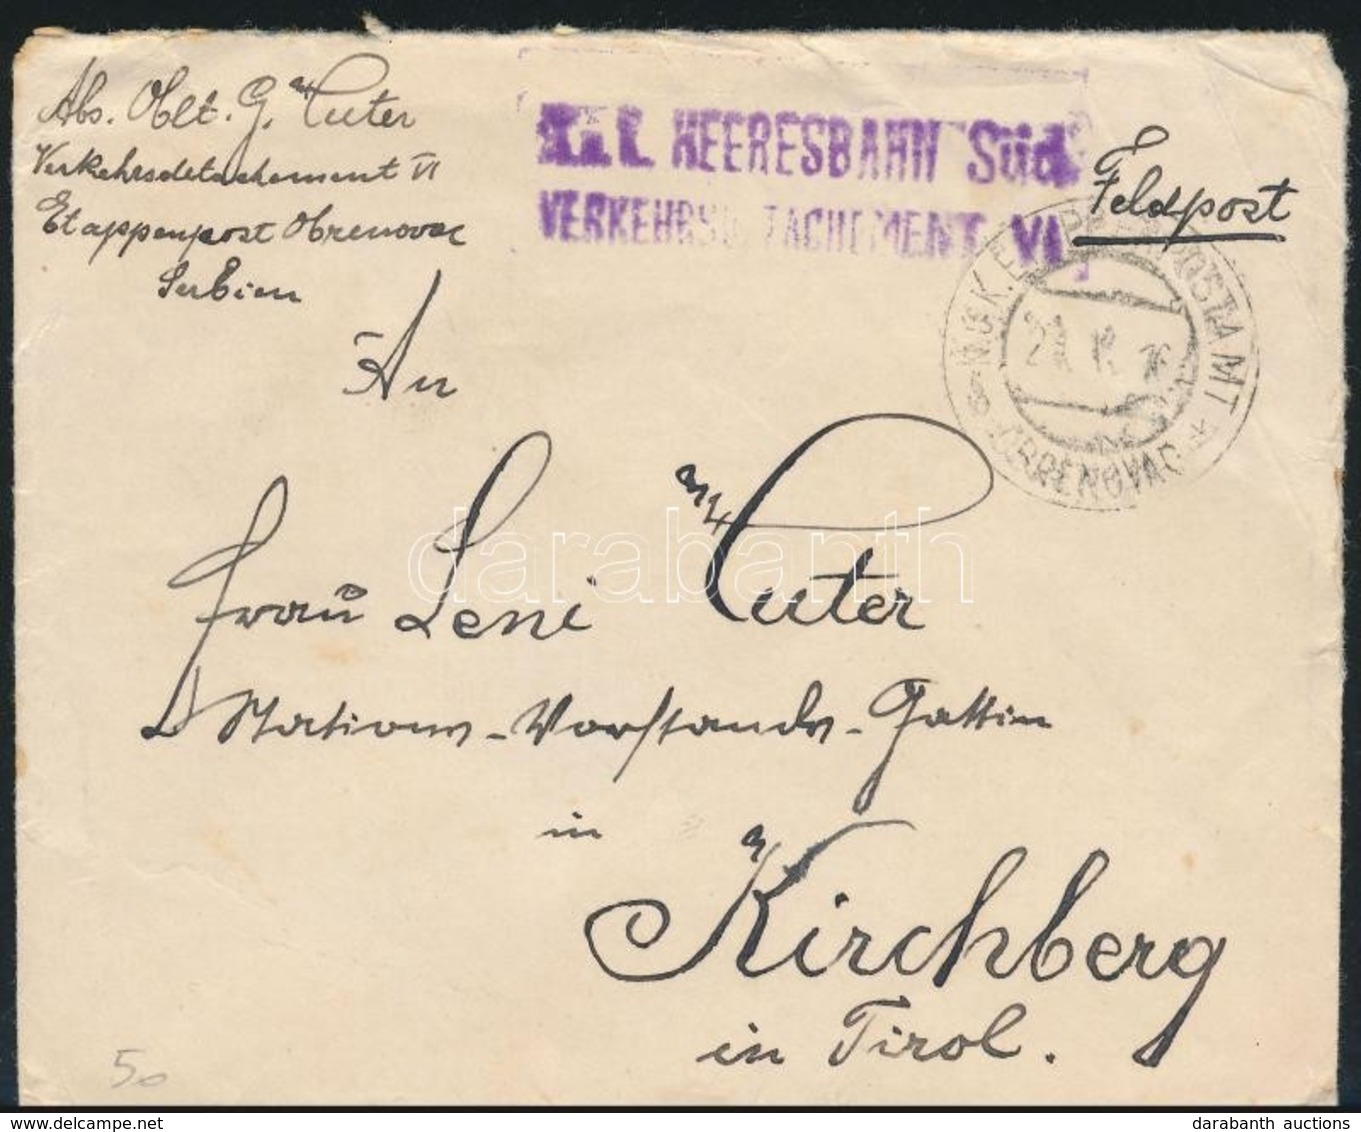 Abs. Oblt. G. Tuter
Verkehrsdetachement VI
Etappenpost Obrenovac
Serbien
K.u.K. HEERESBAHN Süd
VERKEHRSDETACHEMENT VI.
Feldpost
K.u.K. ETAPPENPOSTAMT
OBRENOVAC
An
Frau Leni Tuter
Stations-Vorstands-Gattin
in
Kirchberg
in Tirol.
50
darabanth
darabanth auctions